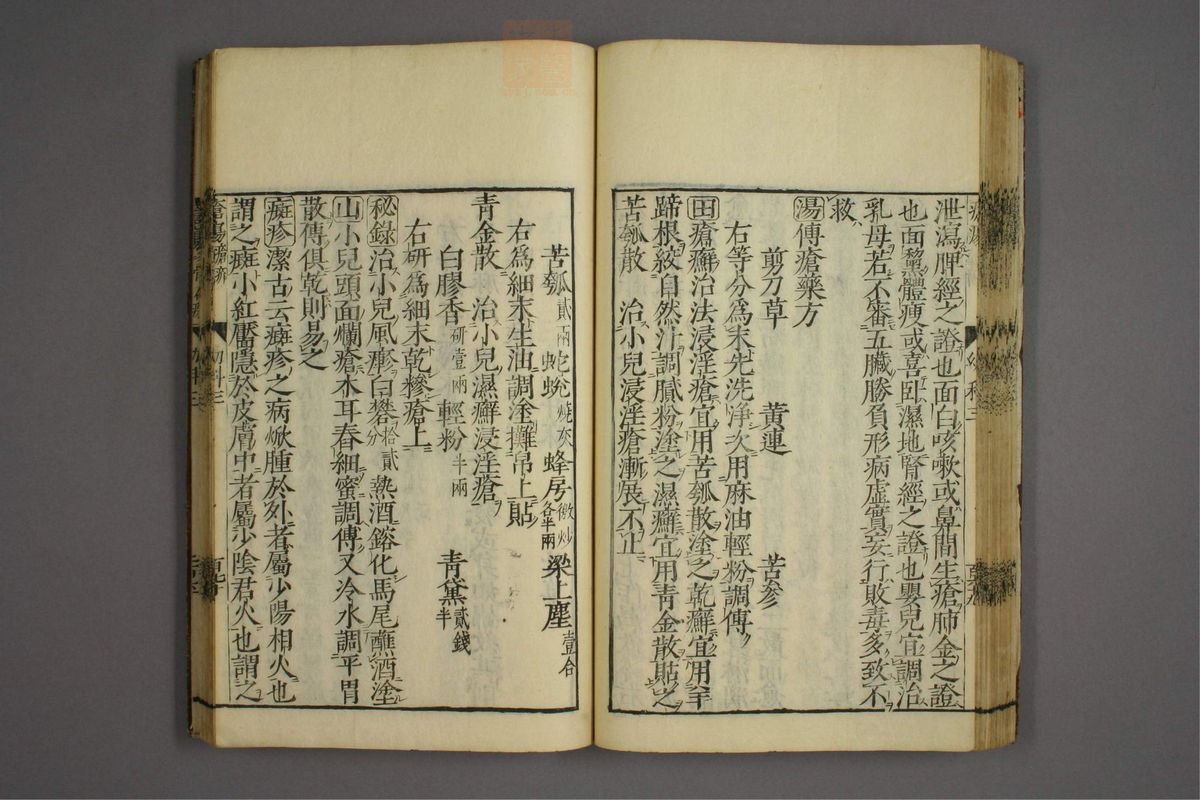 泄瀉脾經之證也面白咳嗽或鼻間生瘡肺金之證
也面黧體瘦或喜卧濕地腎經之證也嬰兒宜調治
乳母若不審五臟勝負形病虚實妄行敗毒多致不
救
湯傅瘡藥方
剪刀草 黄連 苦參
右等分爲末先洗淨次用麻油輕粉調傅
田瘡癬治法浸淫瘡宜用苦瓠散塗之乾癬宜用羊
蹄根絞自然汁調膩粉塗之濕癬宜用青金散貼之
苦瓠散 治小兒浸淫瘡漸展不止
苦瓠貳兩 蛇蛻燒灰 蜂房微炒各半兩 梁上塵壹合
右爲細末生油調塗攤帛上貼
青金散 治小兒濕癬浸淫瘡
白膠香研壹兩 輕粉半兩 青黛貳錢半
右研爲細末乾糝瘡上
秘錄治小兒風瘮白礬拾貳分熱酒鎔化馬尾蘸酒塗
山小兒頭面爛瘡木耳舂細蜜調傅又冷水調平胃
散傅俱乾則易之
癍疹潔古云癍疹之病焮腫於外者屬少陽相火也
謂之癍小紅靨隱於皮膚中者屬少陰君火也謂之